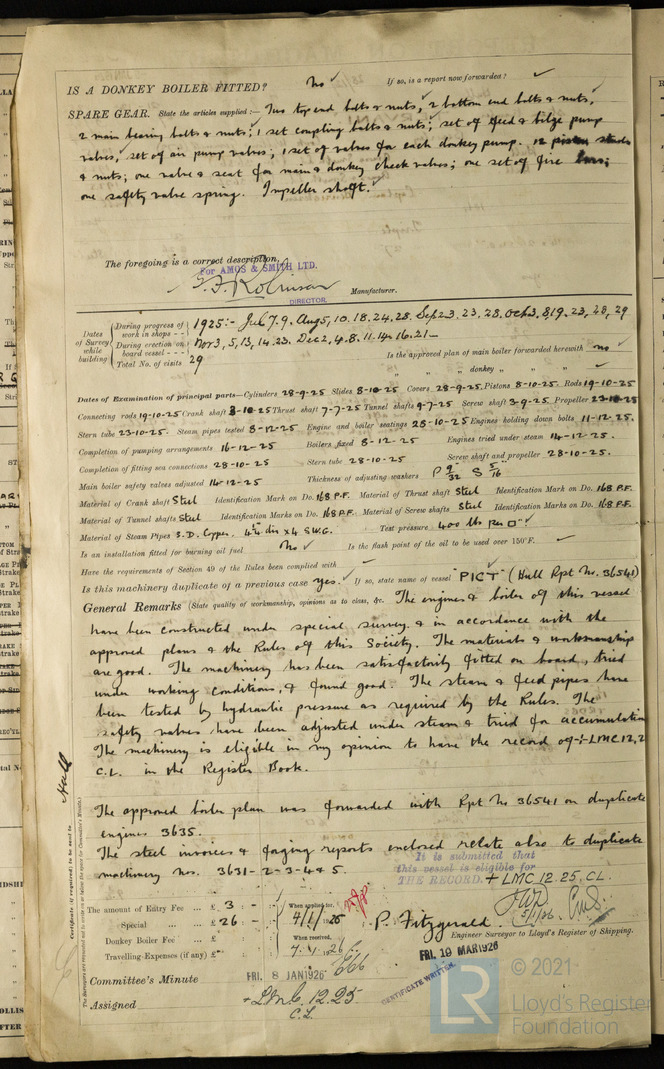 IS A DONKEY BOILER FITTED? No ✓ If so, is a report now forwarded? ✓
SPARE GEAR. State the articles supplied :— Two top end bolts & nuts, 2 bottom end bolts & nuts,
2 main bearing bolts & nuts; 1 set coupling bolts & nuts; set of feed & bilge pump
valves, set of air pump valves; 1 set of valves for each donkey pump. 12 piston studs
& nuts; one valve & seat for main & donkey check valves; one set of fire bars;
one safety valve spring. Impeller shaft.
The foregoing is a correct description,
For AMOS & SMITH LTD.
Robinson Manufacturer.
DIRECTOR.
Dates of Survey while building
During progress of work in shops - - 1925:- Jul 7. 9. Aug 5, 10. 18. 24. 28. Sep 2. 3. 23. 28. Oct 3, 8, 19. 23, 28, 29
During erection on board vessel - - - Nov 3, 5, 13, 14. 23. Dec 2, 4. 8. 11. 14. 16. 21 —
Total No. of visits 29 Is the approved plan of main boiler forwarded herewith no ✓
" " " donkey " " " ✓
Dates of Examination of principal parts—Cylinders 28-9-25 Slides 8-10-25 Covers 28-9-25. Pistons 8-10-25. Rods 19-10-25
Connecting rods 19-10-25 Crank shaft 8-10-25 Thrust shaft 7-7-25 Tunnel shafts 9-7-25 Screw shaft 3-9-25 Propeller 23-10-25
Stern tube 23-10-25. Steam pipes tested 8-12-25 Engine and boiler seatings 28-10-25 Engines holding down bolts 11-12-25.
Completion of pumping arrangements 16-12-25 Boilers fixed 8-12-25 Engines tried under steam 14-12-25.
Completion of fitting sea connections 28-10-25 Stern tube 28-10-25 Screw shaft and propeller 28-10-25.
Main boiler safety valves adjusted 14-12-25 Thickness of adjusting washers P 9/32 S 5/16
Material of Crank shaft Steel Identification Mark on Do. 168 P.F. Material of Thrust shaft Steel Identification Mark on Do. 168 P.F.
Material of Tunnel shafts Steel Identification Marks on Do. 168 P.F. Material of Screw shafts Steel Identification Marks on Do. 168 P.F.
Material of Steam Pipes S.D. Copper. 4¼ dia x 4 S.W.G. Test pressure 400 lbs Per □" ✓
Is an installation fitted for burning oil fuel No ✓ Is the flash point of the oil to be used over 150°F. ✓
Have the requirements of Section 49 of the Rules been complied with ✓
Is this machinery duplicate of a previous case yes. ✓ If so, state name of vessel "PICT" (Hull Rpt No. 36541)
General Remarks (State quality of workmanship, opinions as to class, &c. The engines & boiler of this vessel
have been constructed under special survey & in accordance with the
approved plans & the Rules of this Society. The materials & workmanship
are good. The machinery has been satisfactorily fitted on board, tried
under working conditions, & found good. The steam & feed pipes have
been tested by hydraulic pressure as required by the Rules. The
safety valves have been adjusted under steam & tried for accumulation
The machinery is eligible in my opinion to have the record of +LMC 12,2
C.L. in the Register Book.
Hull
The approved boiler plan was forwarded with Rpt No 36541 on duplicate
engines 3635.
The steel invoices & forging reports enclosed relate also to duplicate
machinery nos. 3631-2-3-4 & 5.
It is submitted that
this vessel is eligible for
THE RECORD. + LMC 12. 25. CL.
5/1/26
The amount of Entry Fee .. £ 3 : - : When applied for,
Special ... ... £ 26 : - : 4/1/1926
Donkey Boiler Fee ... ... £ : : When received,
Travelling Expenses (if any) £ : : 7. 1. 26
P. Fitzgerald.
Engineer Surveyor to Lloyd's Register of Shipping.
Committee's Minute FRI. 8 JAN 1926
FRI. 19 MAR 1926
CERTIFICATE WRITTEN.
Assigned + LMC. 12.25
C.L.
Certificate (if required) to be sent to
© 2021
LR
Lloyd's Register
Foundation